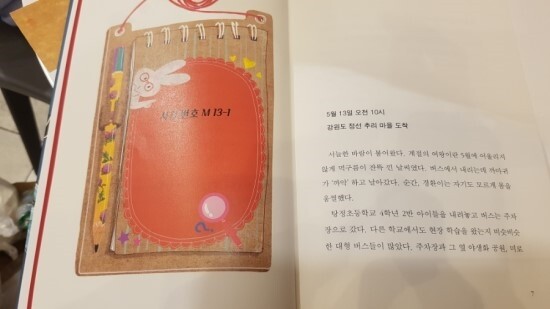 사건번호 M 13-1
5월 13일 오전 10시
강원도 정선 추리 마을 도착
서늘한 바람이 불어왔다. 계절의 여왕이란 5월에 어울리지
않게 먹구름이 잔뜩 낀 날씨였다. 버스에서 내리는데 까마귀
가 '까악' 하고 날아갔다. 순간, 경환이는 자기도 모르게 몸을
움찔했다.
당정초등학교 4학년 2반 아이들을 내려놓고 버스는 주차
장으로 갔다. 다른 학교에서도 현장 학습을 왔는지 비슷비슷
한 대형 버스들이 많았다. 주차장과 그 옆 야생화 공원, 미로
7